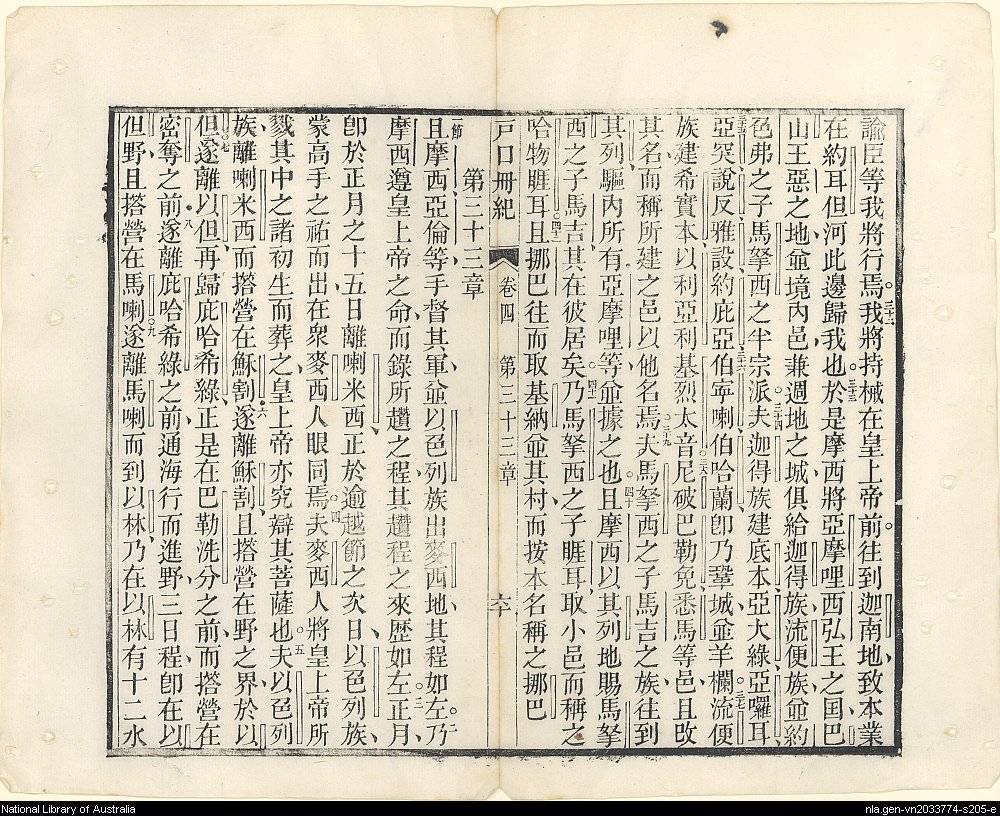 諭臣等我將行焉我將持械在皇上帝前往到迦南地致本業
在約耳但河此邊歸我也於是摩西將亞摩哩西弘王之国巴
山王惡之地並境內邑兼週地之城俱給迦得族流便族並約
色弗之子馬拏西之半宗派夫迦得族建底本亞大綠亞囉耳
亞突說反雅設約庇亞伯寧喇伯哈蘭卽乃鞏城並羊欄流便
族建希實本以利亞利基烈太音尼破巴勒免悉馬等邑且改
其名而稱所建之邑以他名焉夫馬拏西之子馬吉之族往到
其列驅內所有亞摩哩等並據之也且摩西以其列地賜馬拏
西之子馬吉其在彼居矣乃馬拏西之子睚耳取小邑而稱之
哈物睚耳且挪巴往而取基納並其村而按本名稱之挪巴
戶口冊紀 卷四 第三十三章 六十
第三十三章
一節且摩西亞倫等手督其軍並以色列族出麥西地其程如左乃
摩西遵皇上帝之命而錄所趲之程其趲程之來歷如左正月
卽於正月之十五日離喇米西正於逾越節之次日以色列族
蒙高手之祐而出在衆麥西人眼同焉夫麥西人將皇上帝所
戮其中之諸初生而葬之皇上帝亦究辯其菩薩也夫以色列
族離喇米西而搭營在穌割遂離穌割且搭營在野之界於以
但遂離以但再歸庇哈希綠正是在巴勒洗分之前而搭營在
密奪之前遂離庇哈希綠之前通海行而進野三日程卽在以
但野且搭營在馬喇遂離馬喇而到以林乃在以林有十二水
National Library of Australia
nla.gen-vn2033774-s205-e